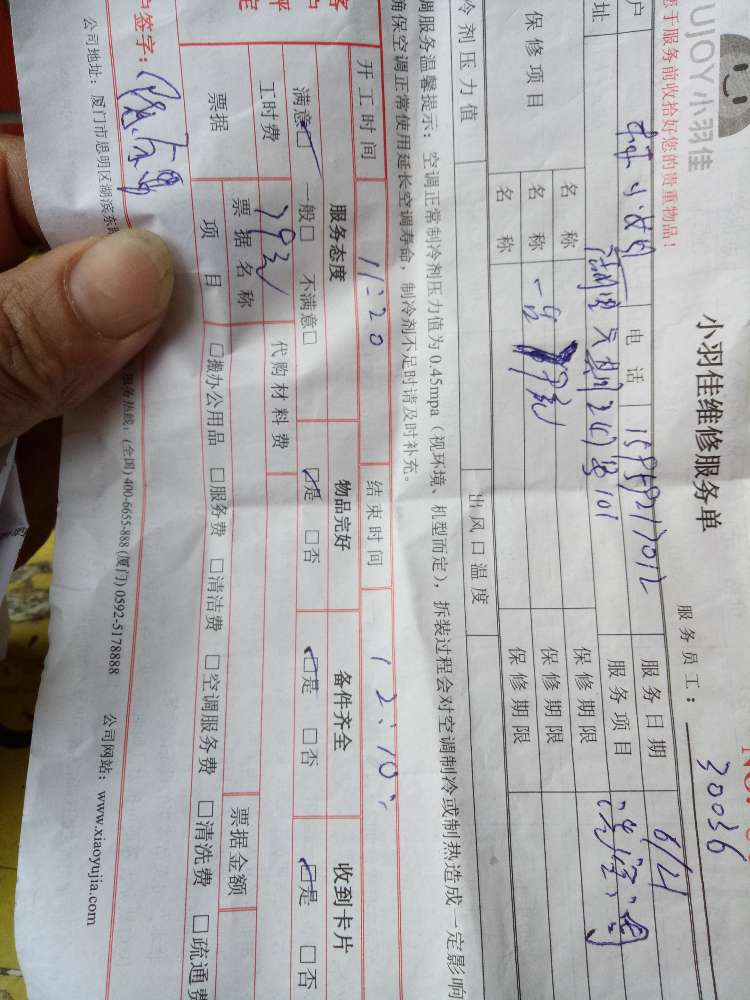 UJOY小羽佳
小羽佳维修服务单
服务员工: 30036
手服务前收拾好您的贵重物品!
户 电话 服务日期 6/21
址 服务项目
保修项目 名称 保修期限
名称 一台 保修期限
名称 保修期限
冷剂压力值 出风口温度
服务温馨提示:空调正常制冷剂压力值为0.45mpa(视环境、机型而定),拆装过程会对空调制冷或制热造成一定影响
确保空调正常使用延长空调寿命,制冷剂不足时请及时补充。
开工时间 11:20 结束时间 12:10
服务态度 物品完好 备件齐全 收到卡片
满意□ 一般□ 不满意□ □是 □否 □是 □否 □是 □否
工时费 79元 代购材料费
票据 票据名称 票据金额
项目 □搬办公用品 □服务费 □清洁费 □空调服务费 □清洗费 □疏通费
户签字:
公司地址:厦门市思明区湖滨东 服务热线:(全国)400-6655-888(厦门)0592-5178888 公司网站:www.xiaoyujia.com